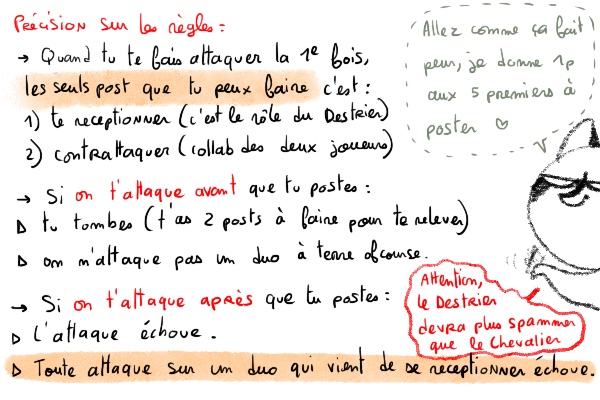 Précision sur les règles :
→ Quand tu te fais attaquer la 1e fois,
les seuls post que tu peux faire c'est :
1) te receptionner (c'est le rôle du Destrier)
2) contrattaquer (collab des deux joueurs)
→ Si on t'attaque avant que tu postes :
▷ tu tombes (t'as 2 posts à faire pour te relever)
▷ on m'attaque pas un duo à terre ofcourse.
→ Si on t'attaque après que tu postes :
▷ L'attaque échoue.
▷ Toute attaque sur un duo qui vient de se receptionner échoue.
Allez comme ça fait
peur, je donne 1p
aux 5 premiers à
poster ♡
Attention,
le Destrier
devra plus spammer
que le Chevalier